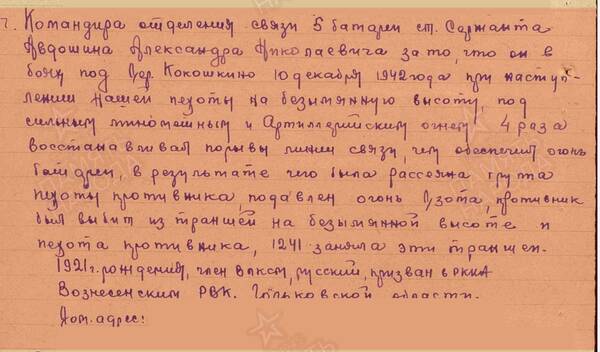 7. Командира отделения связи 5 батареи ст. Сержанта
Авдошина Александра Николаевича за то, что он в
боях под Дер. Кокошкино 10 декабря 1942 года при наступ-
лении нашей пехоты на безымянную высоту, под
сильным минометным и Артиллерийским огнем 4 раза
восстанавливал порывы линии связи, чем обеспечил огонь
батареи, в результате чего была рассеяна группа
пехоты противника, подавлен огонь Дзота, противник
был выбит из траншей на безымянной высоте и
пехота противника, 1241 заняла эти траншеи.
1921 г. рождения, член ВЛКСМ, русский, призван в РККА
Вознесенским РВК. Горьковской области.
Дом. адрес: